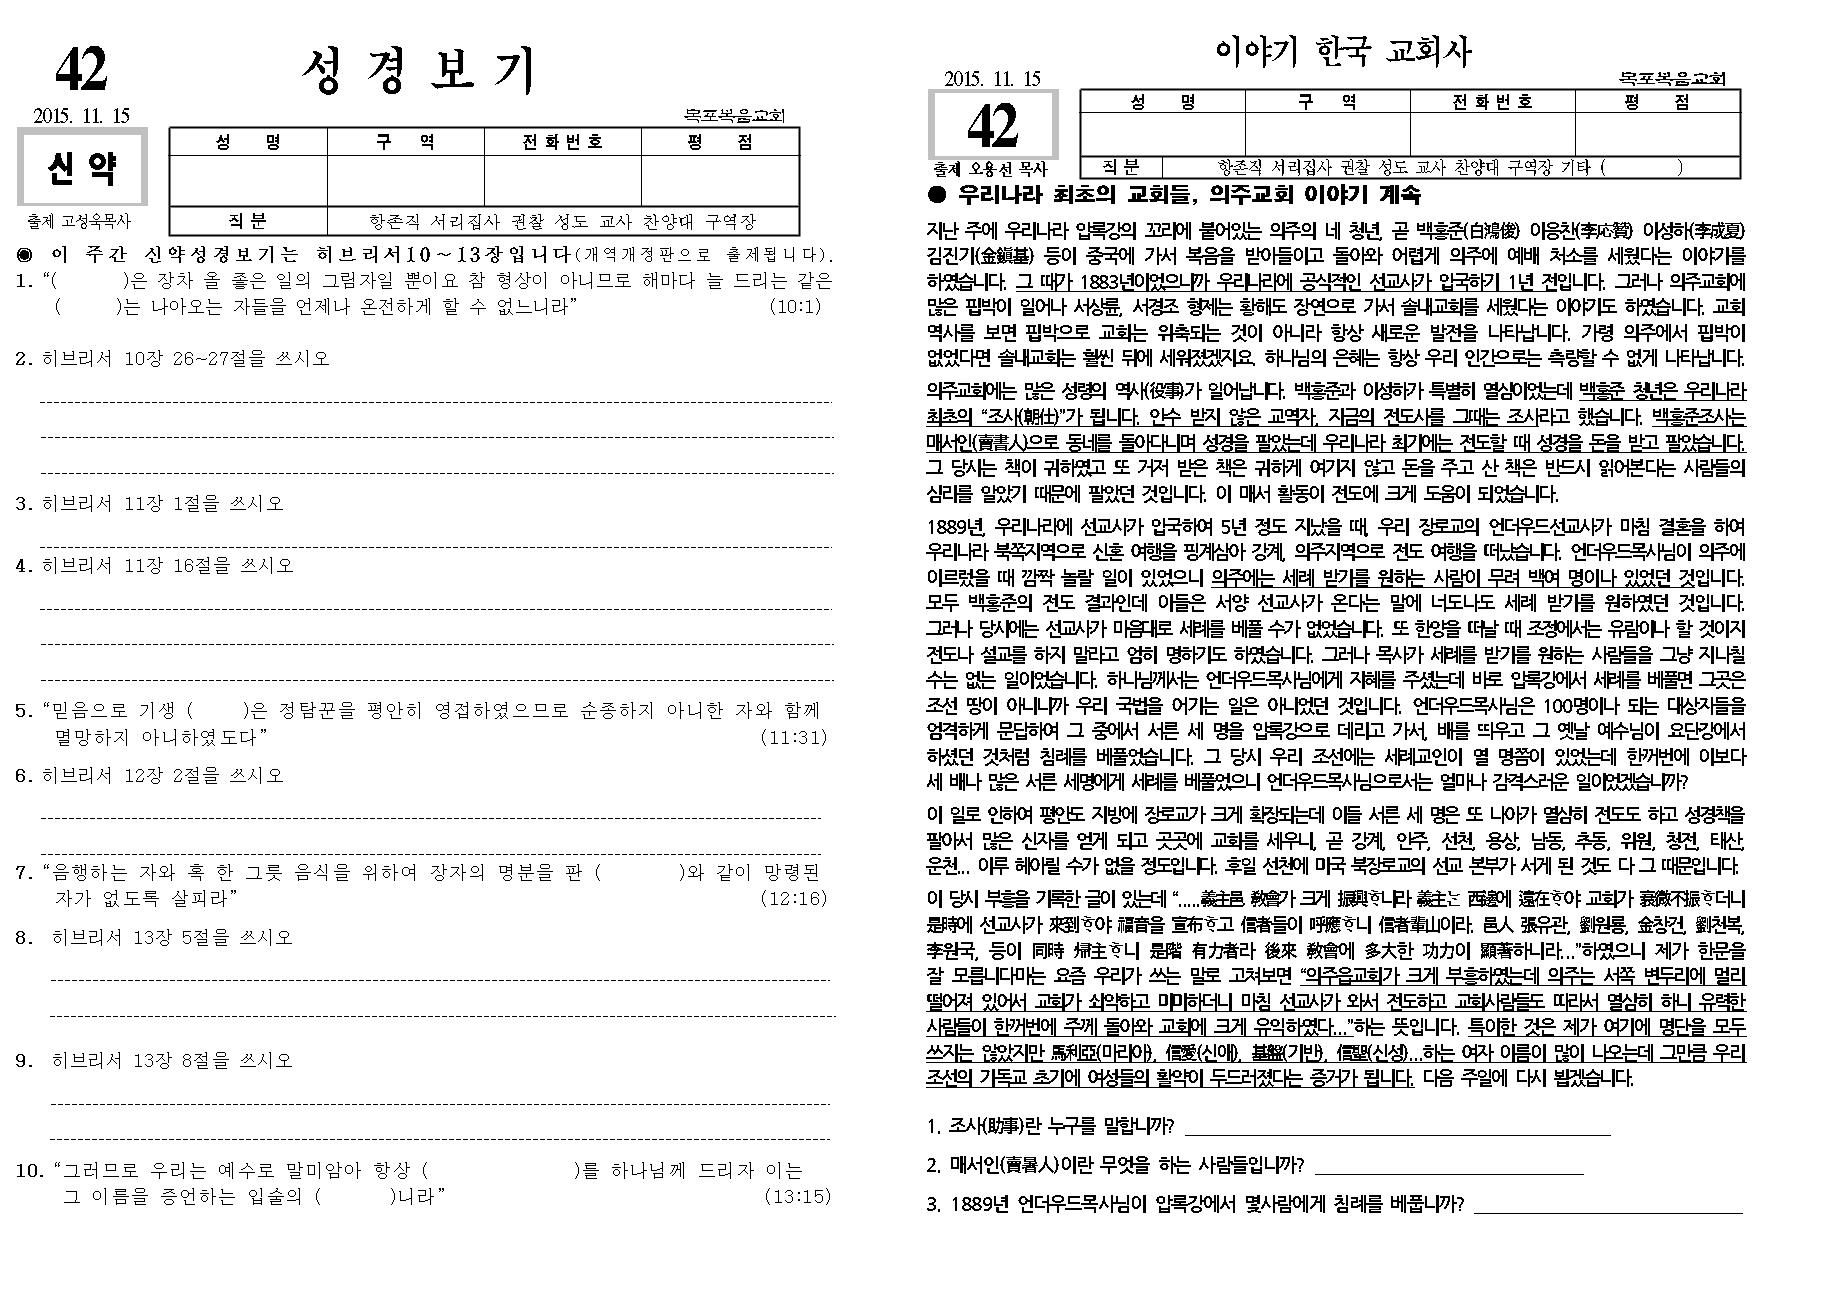 42
성 경 보 기
2015. 11. 15
목포복음교회
신 약
성 명 구 역 전화번호 평 점
출제 고성욱목사
직 분 항존직 서리집사 권찰 성도 교사 찬양대 구역장
◉ 이 주간 신약성경보기는 히브리서10～13장입니다(개역개정판으로 출제됩니다).
1. “( )은 장차 올 좋은 일의 그림자일 뿐이요 참 형상이 아니므로 해마다 늘 드리는 같은
( )는 나아오는 자들을 언제나 온전하게 할 수 없느니라” (10:1)
2. 히브리서 10장 26~27절을 쓰시오
3. 히브리서 11장 1절을 쓰시오
4. 히브리서 11장 16절을 쓰시오
5. “믿음으로 기생 ( )은 정탐꾼을 평안히 영접하였으므로 순종하지 아니한 자와 함께
멸망하지 아니하였도다” (11:31)
6. 히브리서 12장 2절을 쓰시오
7. “음행하는 자와 혹 한 그릇 음식을 위하여 장자의 명분을 판 ( )와 같이 망령된
자가 없도록 살피라” (12:16)
8. 히브리서 13장 5절을 쓰시오
9. 히브리서 13장 8절을 쓰시오
10. “그러므로 우리는 예수로 말미암아 항상 ( )를 하나님께 드리자 이는
그 이름을 증언하는 입술의 ( )니라” (13:15)
이야기 한국 교회사
2015. 11. 15
목포복음교회
42
성 명 구 역 전화번호 평 점
출제 오용선 목사
직분 항존직 서리집사 권찰 성도 교사 찬양대 구역장 기타 ( )
● 우리나라 최초의 교회들, 의주교회 이야기 계속
지난 주에 우리나라 압록강의 꼬리에 붙어있는 의주의 네 청년, 곧 백홍준(白鴻俊) 이응찬(李応贊) 이성하(李成夏)
김진기(金鎭基) 등이 중국에 가서 복음을 받아들이고 돌아와 어렵게 의주에 예배 처소를 세웠다는 이야기를
하였습니다. 그 때가 1883년이었으니까 우리나라에 공식적인 선교사가 입국하기 1년 전입니다. 그러나 의주교회에
많은 핍박이 일어나 서상륜, 서경조 형제는 황해도 장연으로 가서 솔내교회를 세웠다는 이야기도 하였습니다. 교회
역사를 보면 핍박으로 교회는 위축되는 것이 아니라 항상 새로운 발전을 나타납니다. 가령 의주에서 핍박이
없었다면 솔내교회는 훨씬 뒤에 세워졌겠지요. 하나님의 은혜는 항상 우리 인간으로는 측량할 수 없게 나타납니다.
의주교회에는 많은 성령의 역사(役事)가 일어납니다. 백홍준과 이성하가 특별히 열심이었는데 백홍준 청년은 우리나라
최초의 “조사(朝仕)”가 됩니다. 안수 받지 않은 교역자, 지금의 전도사를 그때는 조사라고 했습니다. 백홍준조사는
매서인(賣書人)으로 동네를 돌아다니며 성경을 팔았는데 우리나라 최기에는 전도할 때 성경을 돈을 받고 팔았습니다.
그 당시는 책이 귀하였고 또 거저 받은 책은 귀하게 여기지 않고 돈을 주고 산 책은 반드시 읽어본다는 사람들의
심리를 알았기 때문에 팔았던 것입니다. 이 매서 활동이 전도에 크게 도움이 되었습니다.
1889년, 우리나리에 선교사가 입국하여 5년 정도 지났을 때, 우리 장로교의 언더우드선교사가 마침 결혼을 하여
우리나라 북쪽지역으로 신혼 여행을 핑계삼아 강계, 의주지역으로 전도 여행을 떠났습니다. 언더우드목사님이 의주에
이르렀을 때 깜짝 놀랄 일이 있었으니 의주에는 세례 받기를 원하는 사람이 무려 백여 명이나 있었던 것입니다.
모두 백홍준의 전도 결과인데 이들은 서양 선교사가 온다는 말에 너도나도 세례 받기를 원하였던 것입니다.
그러나 당시에는 선교사가 마음대로 세례를 베풀 수가 없었습니다. 또 한양을 떠날 때 조정에서는 유람이나 할 것이지
전도나 설교를 하지 말라고 엄히 명하기도 하였습니다. 그러나 목사가 세례를 받기를 원하는 사람들을 그냥 지나칠
수는 없는 일이었습니다. 하나님께서는 언더우드목사님에게 지혜를 주셨는데 바로 압록강에서 세례를 베풀면 그곳은
조선 땅이 아니니까 우리 국법을 어기는 일은 아니었던 것입니다. 언더우드목사님은 100명이나 되는 대상자들을
엄격하게 문답하여 그 중에서 서른 세 명을 압록강으로 데리고 가서, 배를 띄우고 그 옛날 예수님이 요단강에서
하셨던 것처럼 침례를 베풀었습니다. 그 당시 우리 조선에는 세례교인이 열 명쯤이 있었는데 한꺼번에 이보다
세 배나 많은 서른 세명에게 세례를 베풀었으니 언더우드목사님으로서는 얼마나 감격스러운 일이었겠습니까?
이 일로 인하여 평안도 지방에 장로교가 크게 확장되는데 이들 서른 세 명은 또 나아가 열심히 전도도 하고 성경책을
팔아서 많은 신자를 얻게 되고 곳곳에 교회를 세우니, 곧 강계, 안주, 선천, 용상, 남동, 추동, 위원, 청전, 태산,
운천... 이루 헤아릴 수가 없을 정도입니다. 후일 선천에 미국 북장로교의 선교 본부가 서게 된 것도 다 그 때문입니다.
이 당시 부흥을 기록한 글이 있는데 “.....義主邑 敎會가 크게 振興ᄒᆞ니라 義主는 西邊에 遠在ᄒᆞ야 교회가 衰微不振ᄒᆞ더니
是時에 선교사가 來到ᄒᆞ야 福音을 宣布ᄒᆞ고 信者들이 呼應ᄒᆞ니 信者輩山이라. 邑人 張유관, 劉원룡, 金창건, 劉천복,
李원국, 등이 同時 帰主ᄒᆞ니 是階 有力者라 後來 敎會에 多大한 功力이 顯著하니라...”하였으니 제가 한문을
잘 모릅니다마는 요즘 우리가 쓰는 말로 고쳐보면 “의주읍교회가 크게 부흥하였는데 의주는 서쪽 변두리에 멀리
떨어져 있어서 교회가 쇠약하고 미미하더니 마침 선교사가 와서 전도하고 교회사람들도 따라서 열심히 하니 유력한
사람들이 한꺼번에 주께 돌아와 교회에 크게 유익하였다...”하는 뜻입니다. 특이한 것은 제가 여기에 명단을 모두
쓰지는 않았지만 馬利亞(마리아), 信愛(신애), 基盤(기반), 信聖(신성)...하는 여자 이름이 많이 나오는데 그만큼 우리
조선의 기독교 초기에 여성들의 활약이 두드러졌다는 증거가 됩니다. 다음 주일에 다시 뵙겠습니다.
1. 조사(助事)란 누구를 말합니까?
2. 매서인(賣暑人)이란 무엇을 하는 사람들입니까?
3. 1889년 언더우드목사님이 압록강에서 몇사람에게 침례를 베풉니까?